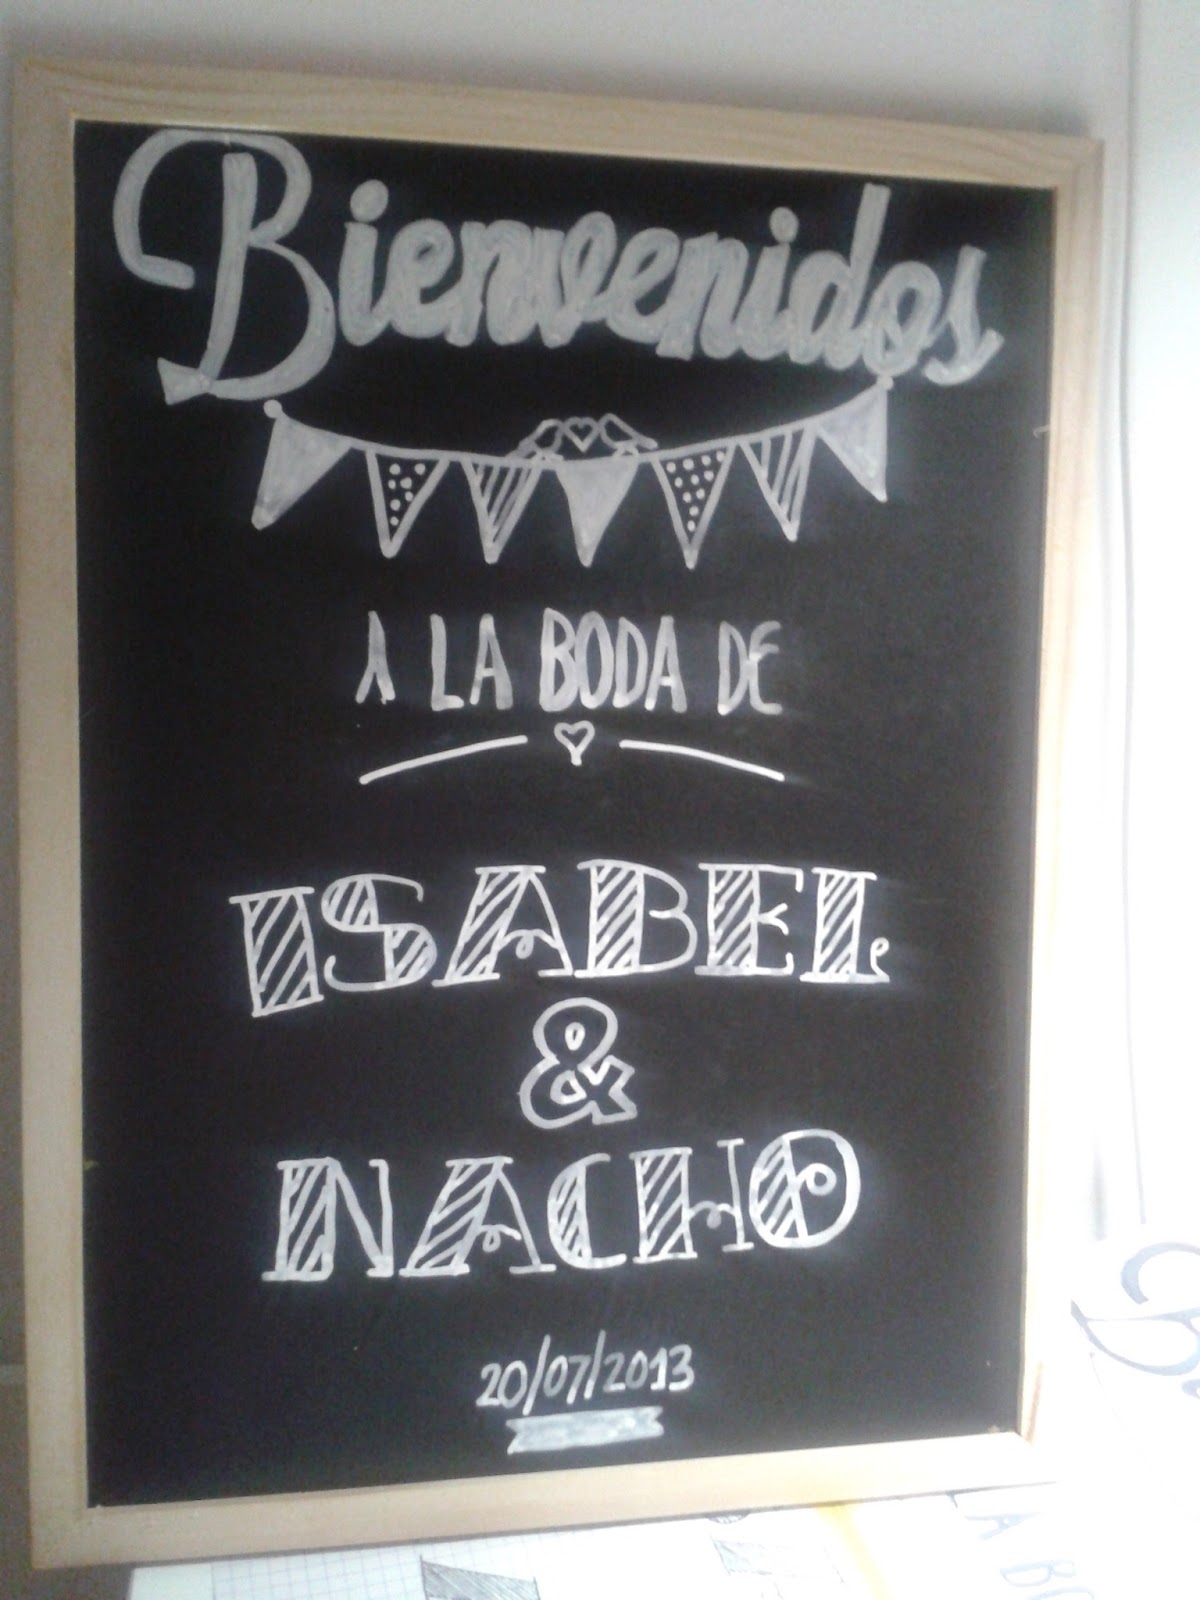 Bienvenidos
A LA BODA DE
ISABEL
&
NACHO
20/07/2013
A BO